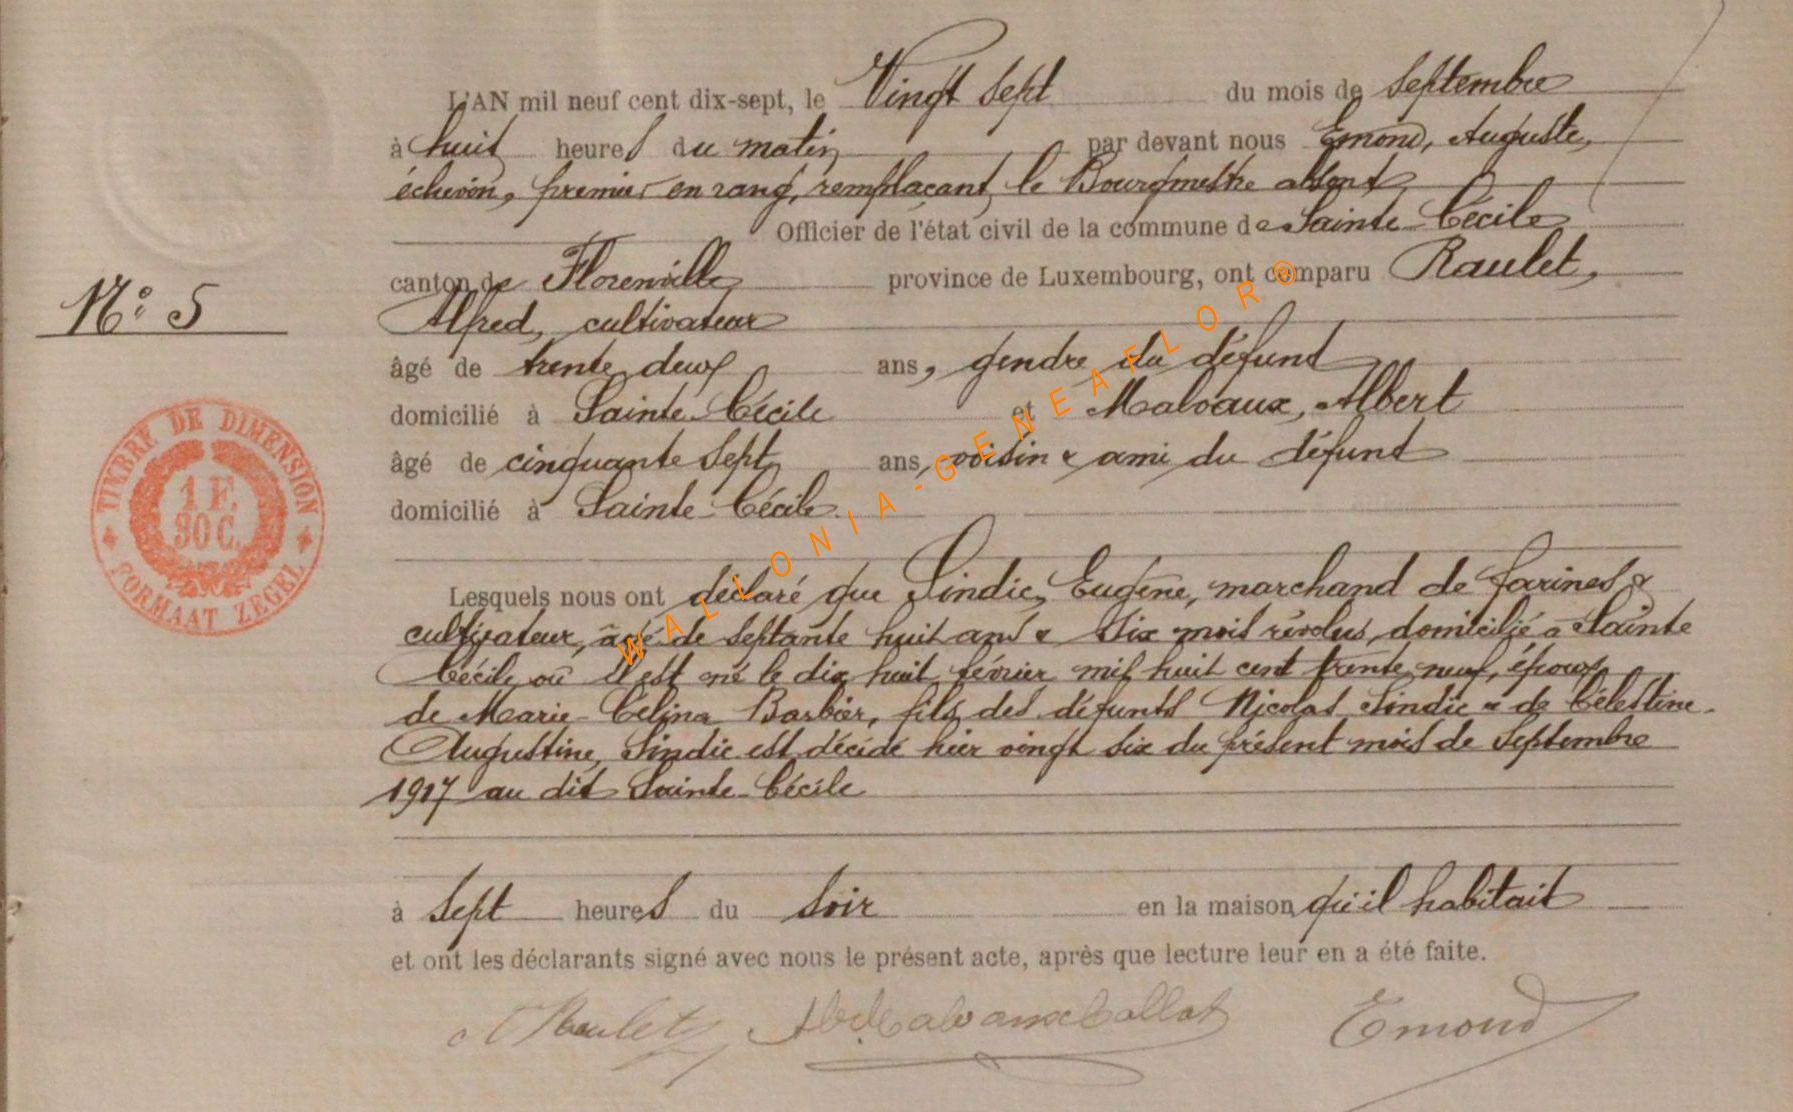 L'AN mil neuf cent dix-sept, le Vingt sept du mois de Septembre
à huit heures du matin par devant nous Emond, Auguste,
échevin, premier en rang, remplaçant le Bourgmestre absent
Officier de l'état civil de la commune de Sainte-Cécile
canton de Florenville province de Luxembourg, ont comparu Raulet,
N° 5
Alfred, cultivateur
âgé de trente deux ans, gendre du défunt
domicilié à Sainte-Cécile et Malvaux, Albert
âgé de cinquante sept ans, voisin & ami du défunt
domicilié à Sainte-Cécile.
TIMBRE DE DIMENSION
1 F.
30 C.
FORMAAT ZEGEL
Lesquels nous ont déclaré que Sindic, Eugène, marchand de farines &
cultivateur, âgé de septante huit ans & six mois révolus, domicilié à Sainte
Cécile où il est né le dix huit février mil huit cent trente neuf, époux
de Marie-Célina Barbier, fils des défunts Nicolas Sindic & de Célestine-
Augustine, Sindic est décédé hier vingt six du présent mois de Septembre
1917 au dit Sainte-Cécile
à sept heures du soir en la maison qu'il habitait
et ont les déclarants signé avec nous le présent acte, après que lecture leur en a été faite.
A Raulet Alb. Malvaux Collot Emond
WALLONIA-GENEAFLOR®